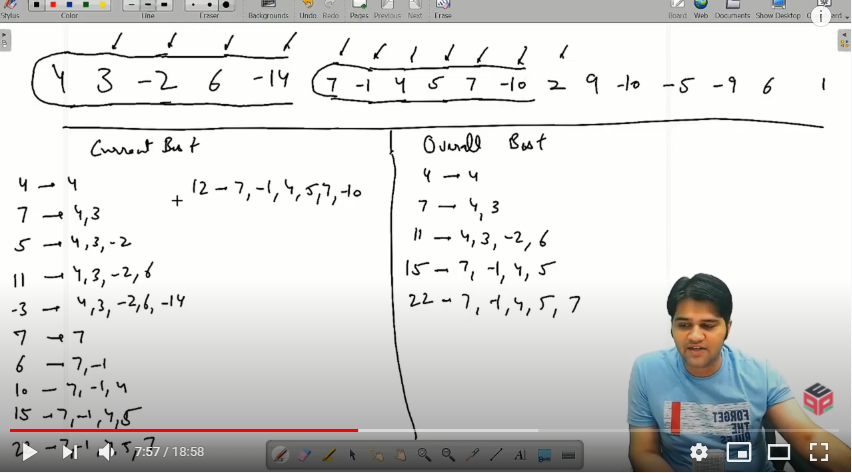 Stylus Color Line Eraser Backgrounds Undo Redo Pages Previous Next Erase Board Web Documents Show Desktop
4 3 -2 6 -14 7 -1 4 5 7 -10 2 9 -10 -5 -9 6 1
Current Best
4 → 4
7 → 4,3
5 → 4,3,-2
11 → 4,3,-2,6
-3 → 4,3,-2,6,-14
7 → 7
6 → 7,-1
10 → 7,-1,4
15 → 7,-1,4,5
+ 12 → 7,-1,4,5,7,-10
Overall Best
4 → 4
7 → 4,3
11 → 4,3,-2,6
15 → 7,-1,4,5
22 → 7,-1,4,5,7
FORGET
THE
RULES
7:57 / 18:58